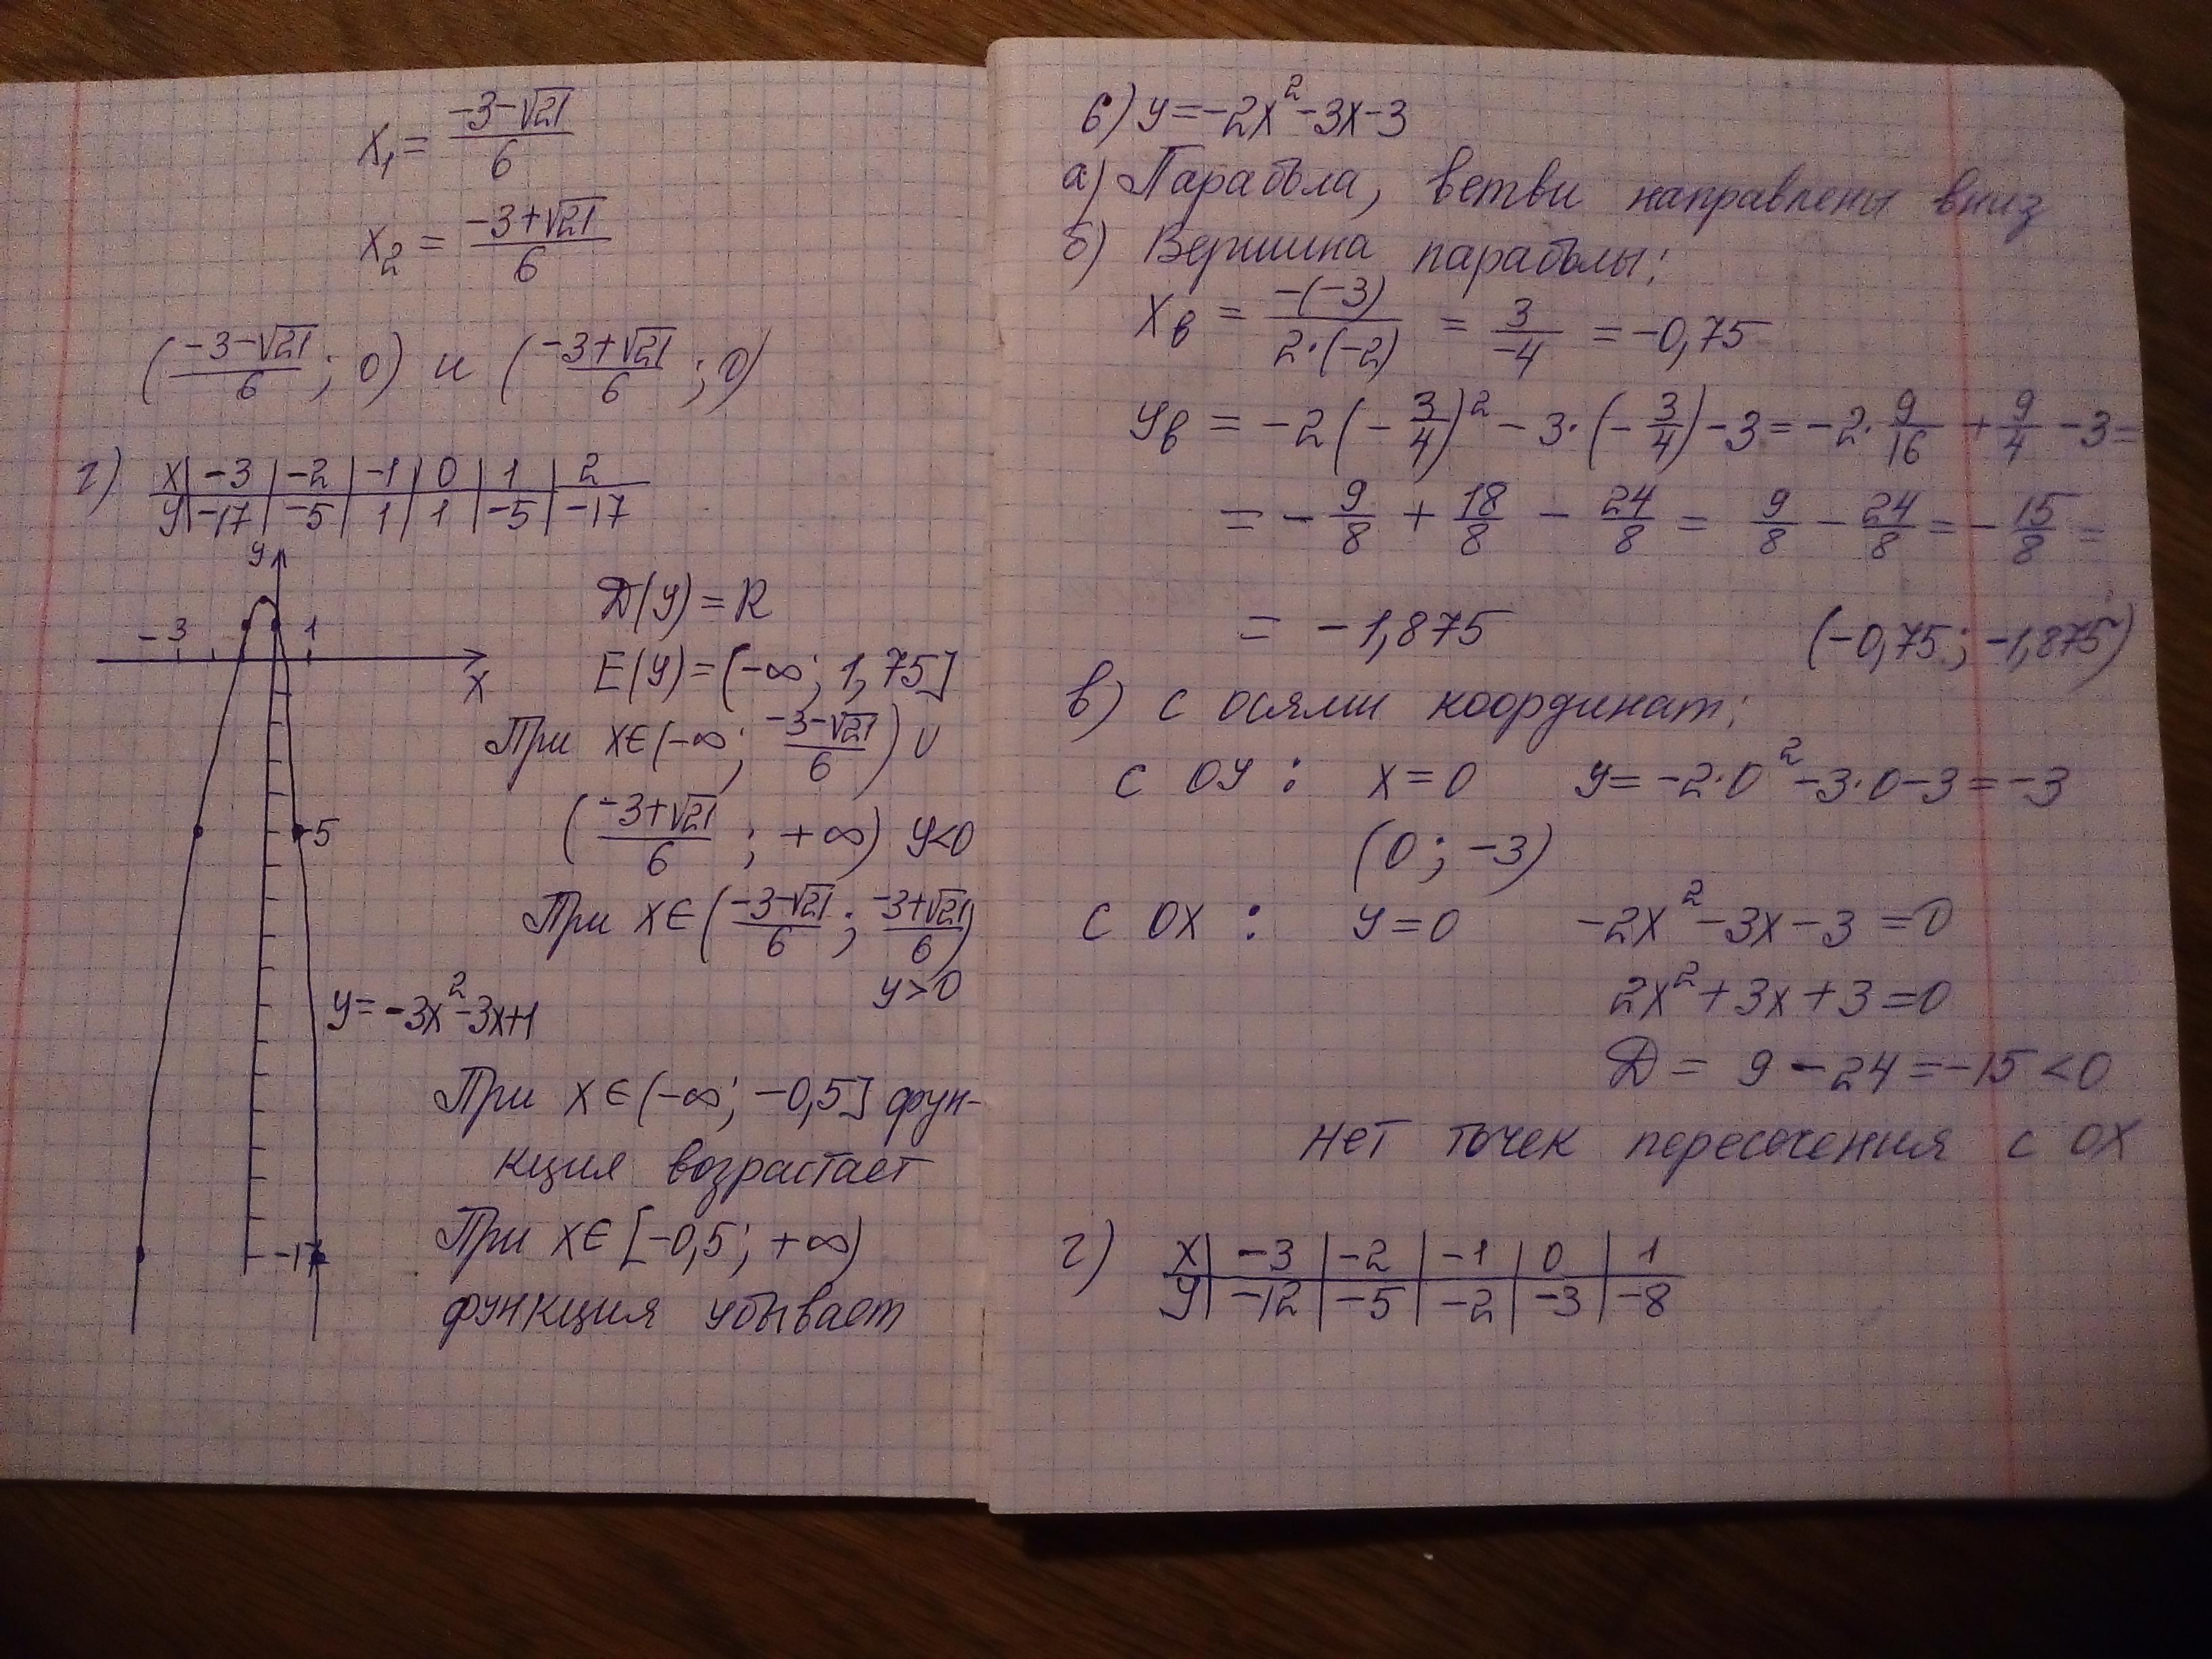 x₁ = (-3-√21)/6
x₂ = (-3+√21)/6
((-3-√21)/6 ; 0) и ((-3+√21)/6 ; 0)
г) x | -3 | -2 | -1 | 0 | 1 | 2
y | -17 | -5 | 1 | 1 | -5 | -17
y
-3 1
x
-5
-17
y = -3x²-3x+1
D(y) = R
E(y) = (-∞; 1,75]
При x∈(-∞; (-3-√21)/6) ∪
((-3+√21)/6 ; +∞) y<0
При x∈((-3-√21)/6 ; (-3+√21)/6)
y>0
При x∈(-∞; -0,5] фун-
кция возрастает
При x∈[-0,5; +∞)
функция убывает
6) y = -2x²-3x-3
а) Парабола, ветви направлены вниз
б) Вершина параболы:
xв = -(-3)/(2·(-2)) = 3/-4 = -0,75
yв = -2(-3/4)² - 3·(-3/4) - 3 = -2·9/16 + 9/4 - 3 =
= -9/8 + 18/8 - 24/8 = 9/8 - 24/8 = -15/8 =
= -1,875 (-0,75; -1,875)
в) с осями координат:
с OY : x=0 y= -2·0²-3·0-3 = -3
(0; -3)
с OX : y=0 -2x²-3x-3 =0
2x²+3x+3=0
D = 9-24=-15<0
нет точек пересечения с OX
г) x | -3 | -2 | -1 | 0 | 1
y | -12 | -5 | -2 | -3 | -8